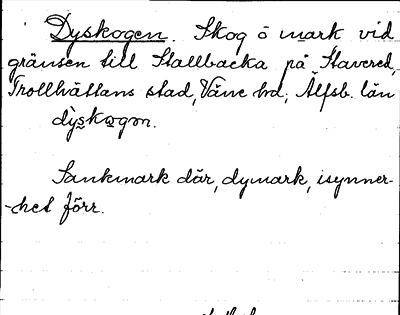 Dyskogen. Skog ö mark vid
gränsen till Stallbacka på Stavered,
Trollhättans stad, Väne hd, Älfsb. län
dỳskogon.
Sankmark där, dymark, isynner-
-het förr.